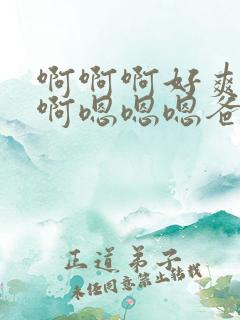 啊啊啊好爽
啊嗯嗯嗯爸
正道弟子
未经同意禁止转载